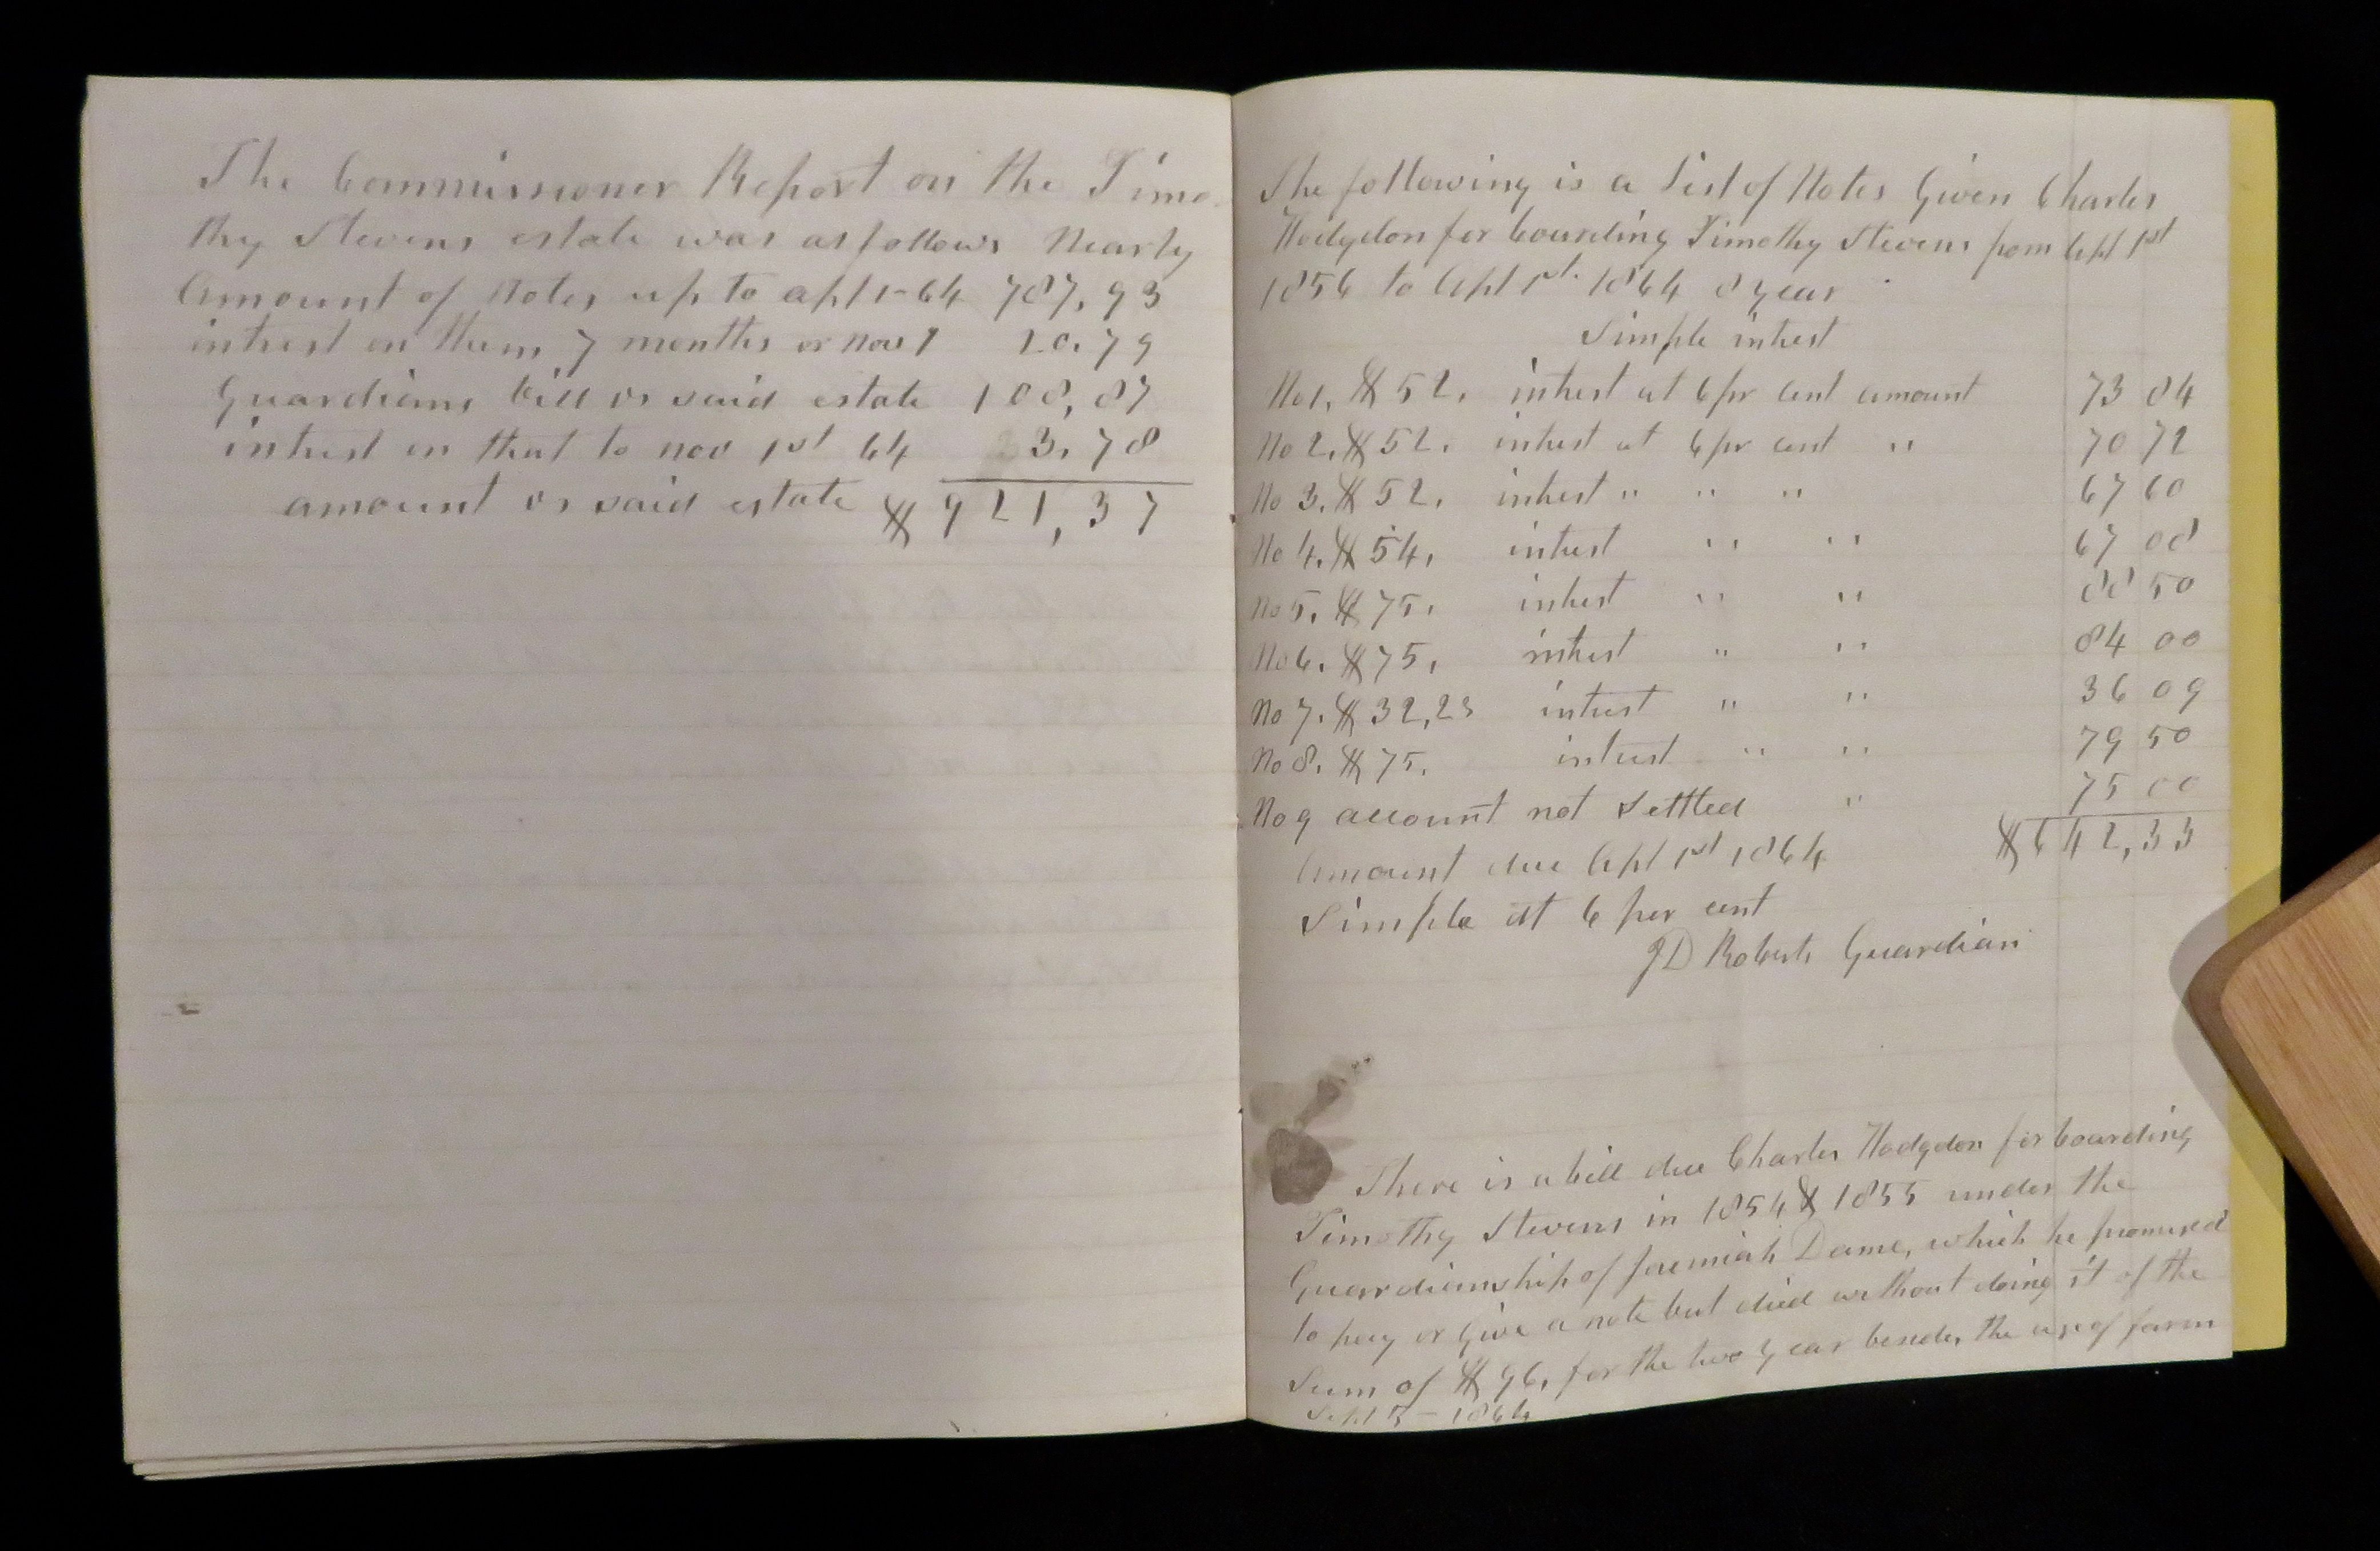 The Commissioner Report on the Timo
thy Stevens estate was as follows Nearly
Amount of Notes up to apl 1-64 787,93
intrest on them 7 months or nov 1 20,79
Guardians bill vs said estate 108,87
intrest on that to nov 1st 64 3,78
amount vs said estate $ 921,37
The following is a List of Notes Given Charles
Hodgdon for boarding Timothy Stevens from Apl 1st
1856 to Apl 1st 1864 8 year
Simple intrest
No 1, $ 52, intrest at 6 pr cent amount 73 84
No 2, $ 52, intrest at 6 pr cent " 70 72
No 3, $ 52, intrest " " " 67 60
No 4, $ 54, intrest " " 67 08
No 5, $ 75, intrest " " 88 50
No 6, $ 75, intrest " " 84 00
No 7, $ 32,23 intrest " " 36 09
No 8, $ 75, intrest " " 79 50
No 9 account not Settled " 75 00
Amount due Apl 1st 1864 $ 642,33
Simple at 6 per cent
JD Roberts Guardian
There is a bill due Charles Hodgdon for boarding
Timothy Stevens in 1854 & 1855 under the
Guardianship of Jeremiah Dame, which he promised
to pay or Give a note but died without doing it of the
Sum of $ 96, for the two year besides the use of farm
Sept 5 - 1864